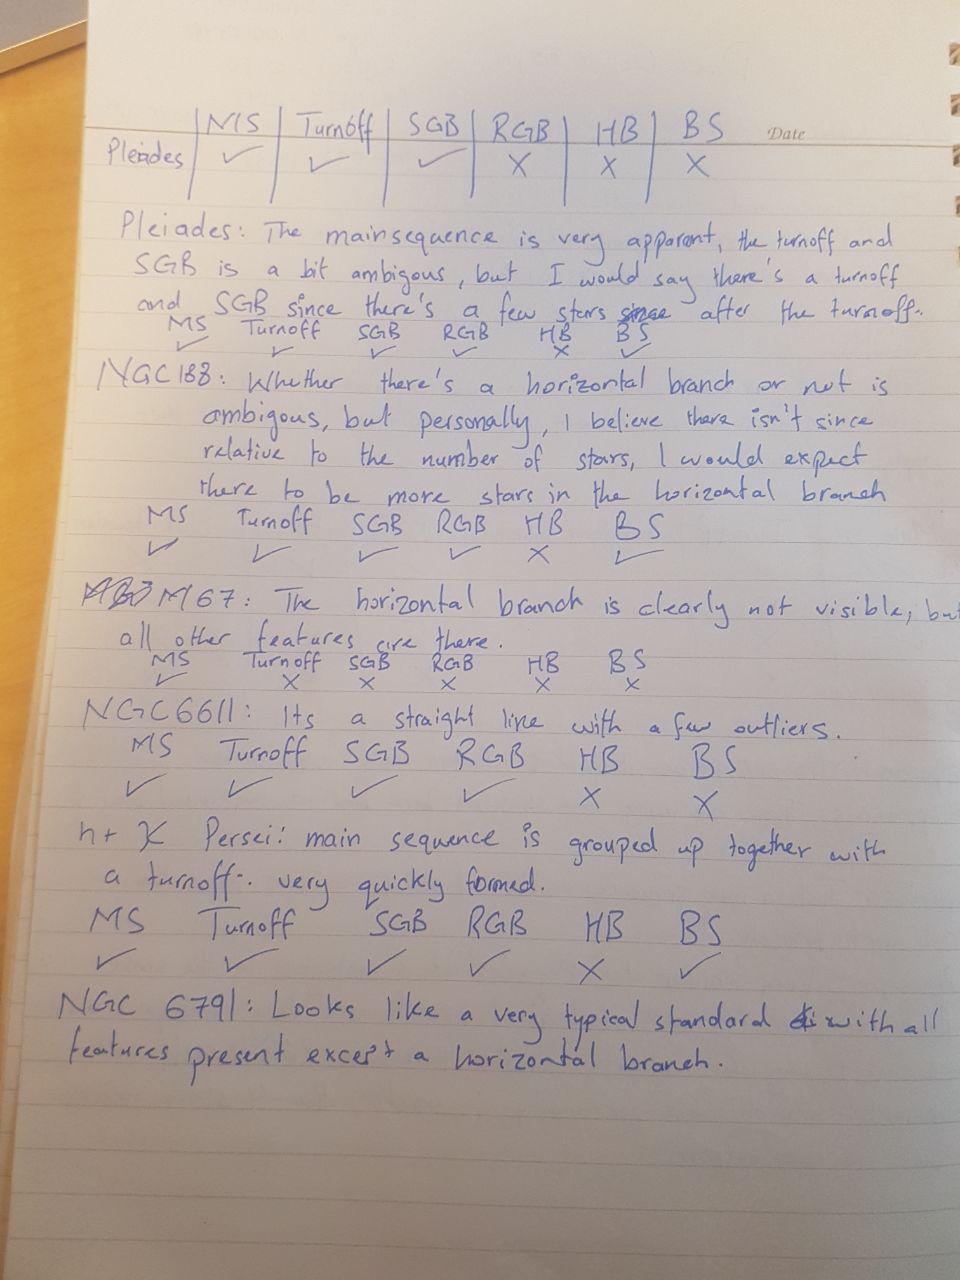 MS Turnoff SGB RGB HB BS Date
Pleiades ✓ ✓ ✓ X X X
Pleiades: The mainsequence is very apparent, the turnoff and
SGB is a bit ambigous, but I would say there's a turnoff
and SGB since there's a few stars after the turnoff.
MS Turnoff SGB RGB HB BS
✓ ✓ ✓ ✓ X ✓
NGC188: Whether there's a horizontal branch or not is
ambigous, but personally, I believe there isn't since
relative to the number of stars, I would expect
there to be more stars in the horizontal branch
MS Turnoff SGB RGB HB BS
✓ ✓ ✓ ✓ X ✓
M67: The horizontal branch is clearly not visible, but
all other features are there.
MS Turnoff SGB RGB HB BS
✓ X X X X X
NGC6611: Its a straight line with a few outliers.
MS Turnoff SGB RGB HB BS
✓ ✓ ✓ ✓ X X
h + χ Persei: main sequence is grouped up together with
a turnoff. very quickly formed.
MS Turnoff SGB RGB HB BS
✓ ✓ ✓ ✓ X ✓
NGC 6791: Looks like a very typical standard with all
features present except a horizontal branch.